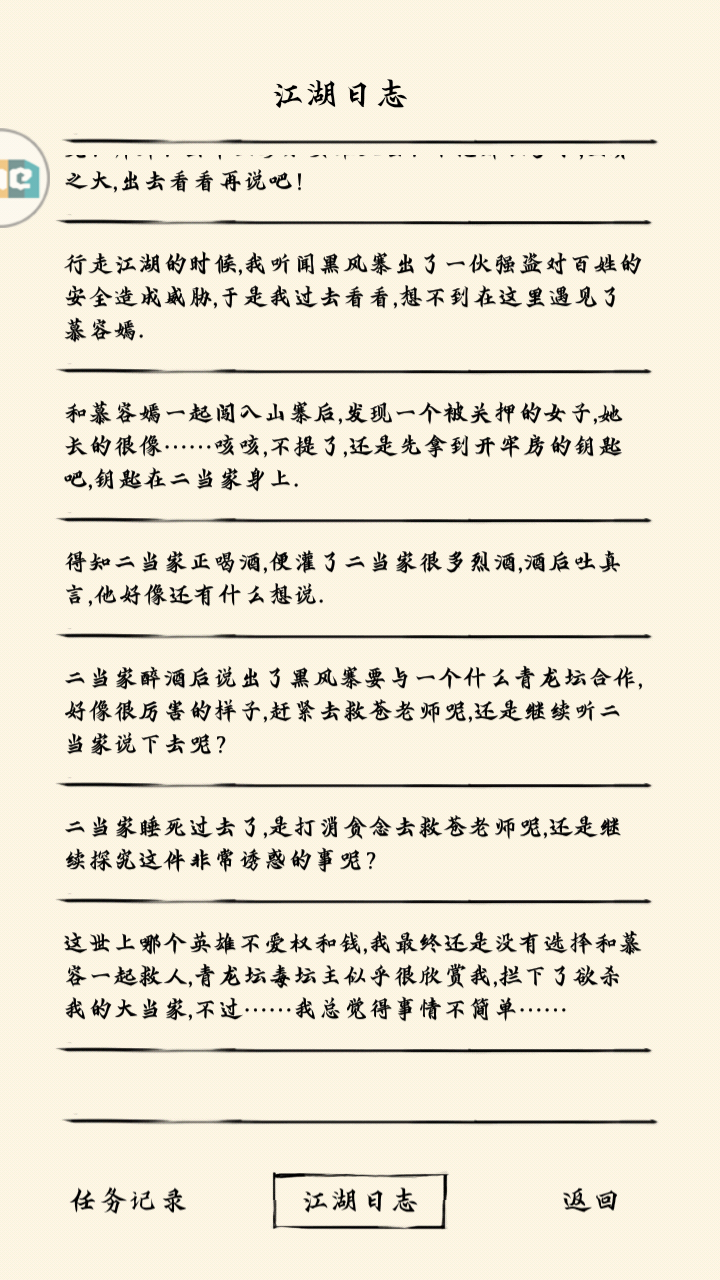 江湖日志
之大,出去看看再说吧!
行走江湖的时候,我听闻黑风寨出了一伙强盗对百姓的
安全造成威胁,于是我过去看看,想不到在这里遇见了
慕容嫣.
和慕容嫣一起闯入山寨后,发现一个被关押的女子,她
长的很像……咳咳,不提了,还是先拿到开牢房的钥匙
吧,钥匙在二当家身上.
得知二当家正喝酒,便灌了二当家很多烈酒,酒后吐真
言,他好像还有什么想说.
二当家醉酒后说出了黑风寨要与一个什么青龙坛合作,
好像很厉害的样子,赶紧去救苍老师呢,还是继续听二
当家说下去呢?
二当家睡死过去了,是打消贪念去救苍老师呢,还是继
续探究这件非常诱惑的事呢?
这世上哪个英雄不爱权和钱,我最终还是没有选择和慕
容一起救人,青龙坛毒坛主似乎很欣赏我,拦下了欲杀
我的大当家,不过……我总觉得事情不简单……
任务记录
江湖日志
返回